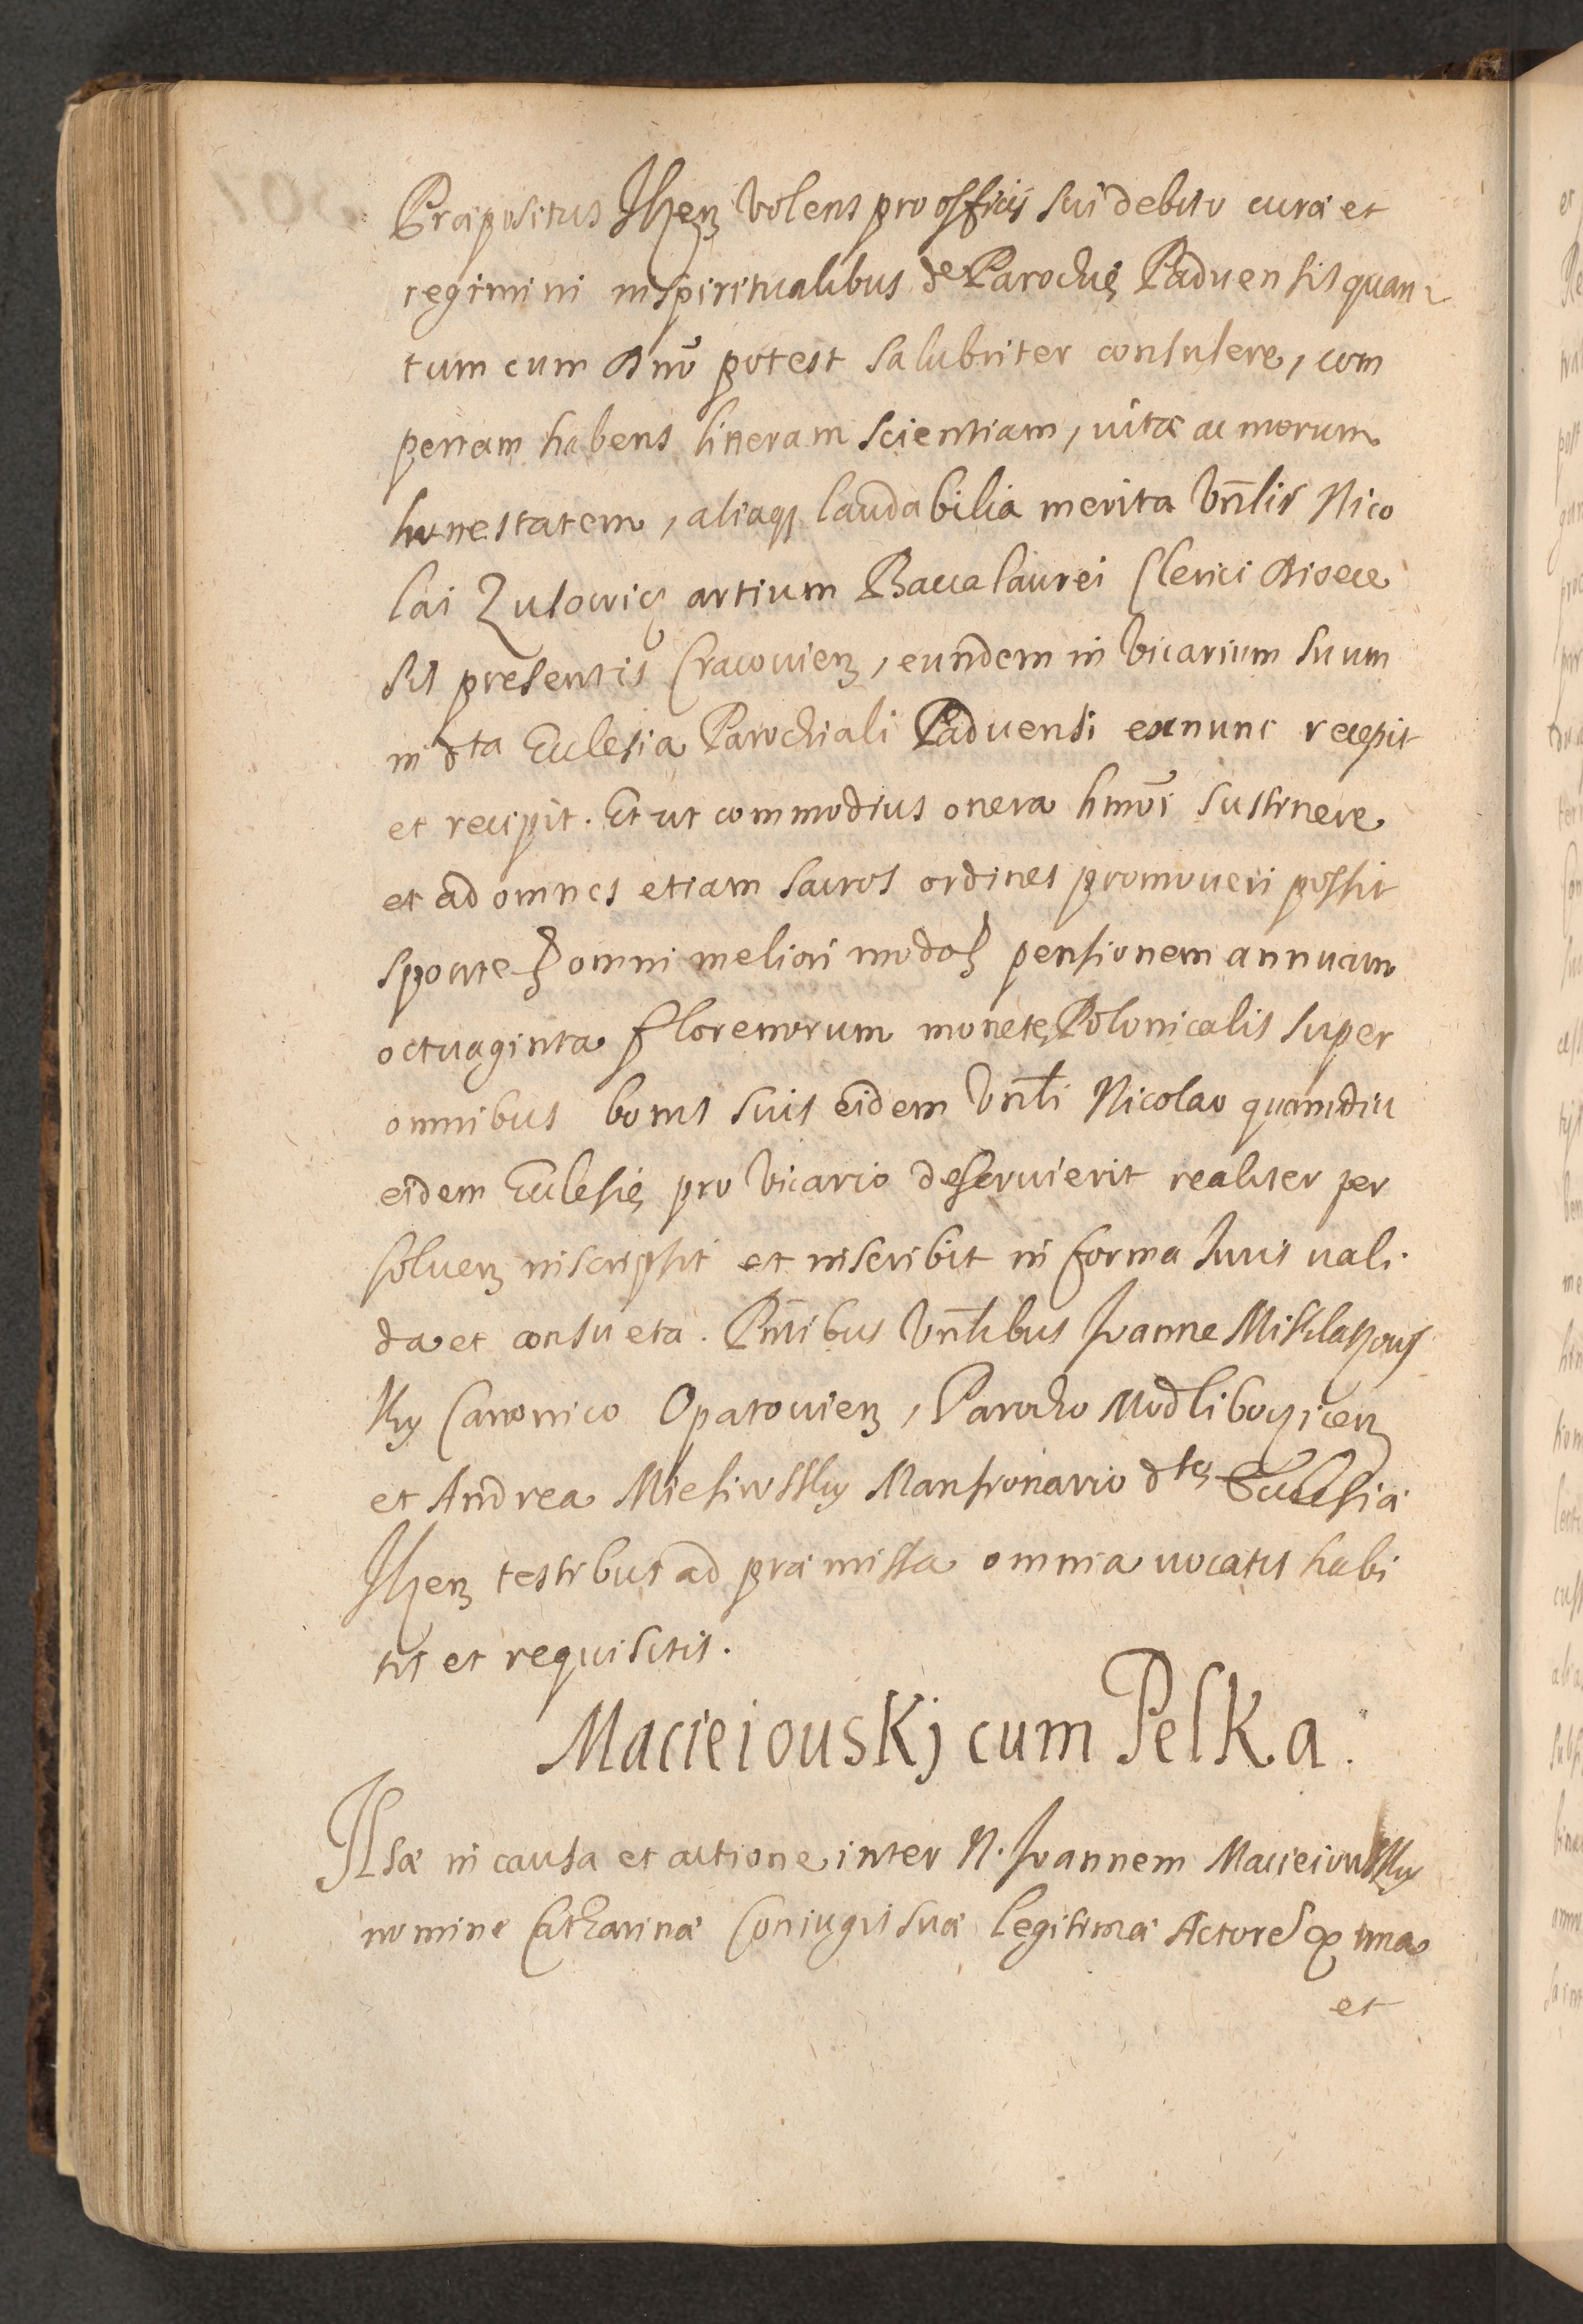 Præpositus Ilzen volens pro officij sui debito curæ et
regimini in spiritualibus de Parochię Paduensis quan
tum cum Dno potest salubriter consulere, com
pertam habens literarum scientiam, vitæ ac morum
honestatem, aliaq laudabilia merita Vnlis Nico
lai Zulowicz artium Baccalaurei Clerici Dioece
sis presentis Cracouien, eundem in Vicarium suum
in dta Ecclesia Parochiali Paduensi exnunc recepit
et recipit. Et ut commodius onera hmoi sustinere
et ad omnes etiam sacros ordines promoueri possit
sponte omni meliori modo pensionem annuam
octuaginta florenorum monetę Polonicalis super
omnibus bonis suis eidem Vnli Nicolao quamdiu
eidem Ecclesię pro Vicario deseruierit realiter per
soluen inscripsit et inscribit in forma Iuris uali
da et consueta. Pntibus Vnlibus Ioanne Misklazous
ky Canonico Opatouien, Parocho Modliborzicen
et Andrea Miesiowsky Mansionario dtę Ecclesiæ
Ilzen testibus ad præmissa omnia uocatis habi
tis et requisitis.
Macieiouskj cum Pelka.
Ipsæ in causa et actione inter N. Ioannem Macieiowsky
nomine Catharinæ Coniugis suæ legitimæ Actore ex una
et